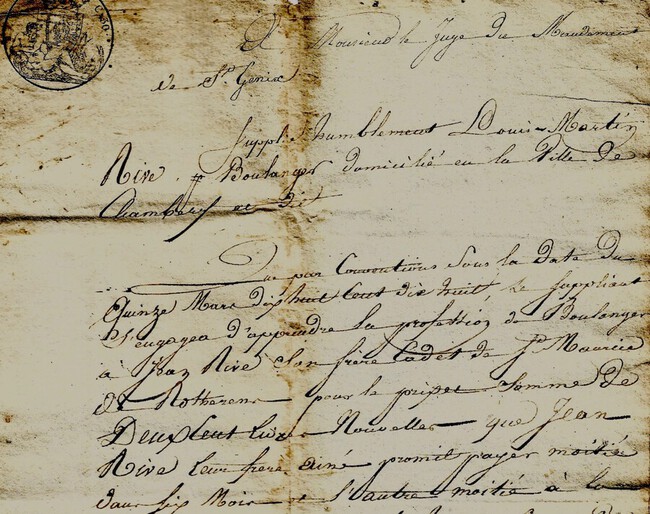 A Monsieur le Juge du Mandement
de St. Genix
Supplie humblement Louis-Martin
Rive, Boulanger domicilié en la Ville de
Chambery et dit
Que par Conventions sous la date du
Quinze Mars dixhuit Cent dix huit, le suppliant
s'engagea d'apprendre la profession de Boulanger
à Jean Rive son frère Cadet de St. Maurice
de Rotherens pour le prix et somme de
Deux Cent livres Nouvelles que Jean
Rive leur frere ainé promit payer moitié
dans six Mois et l'autre moitié à la